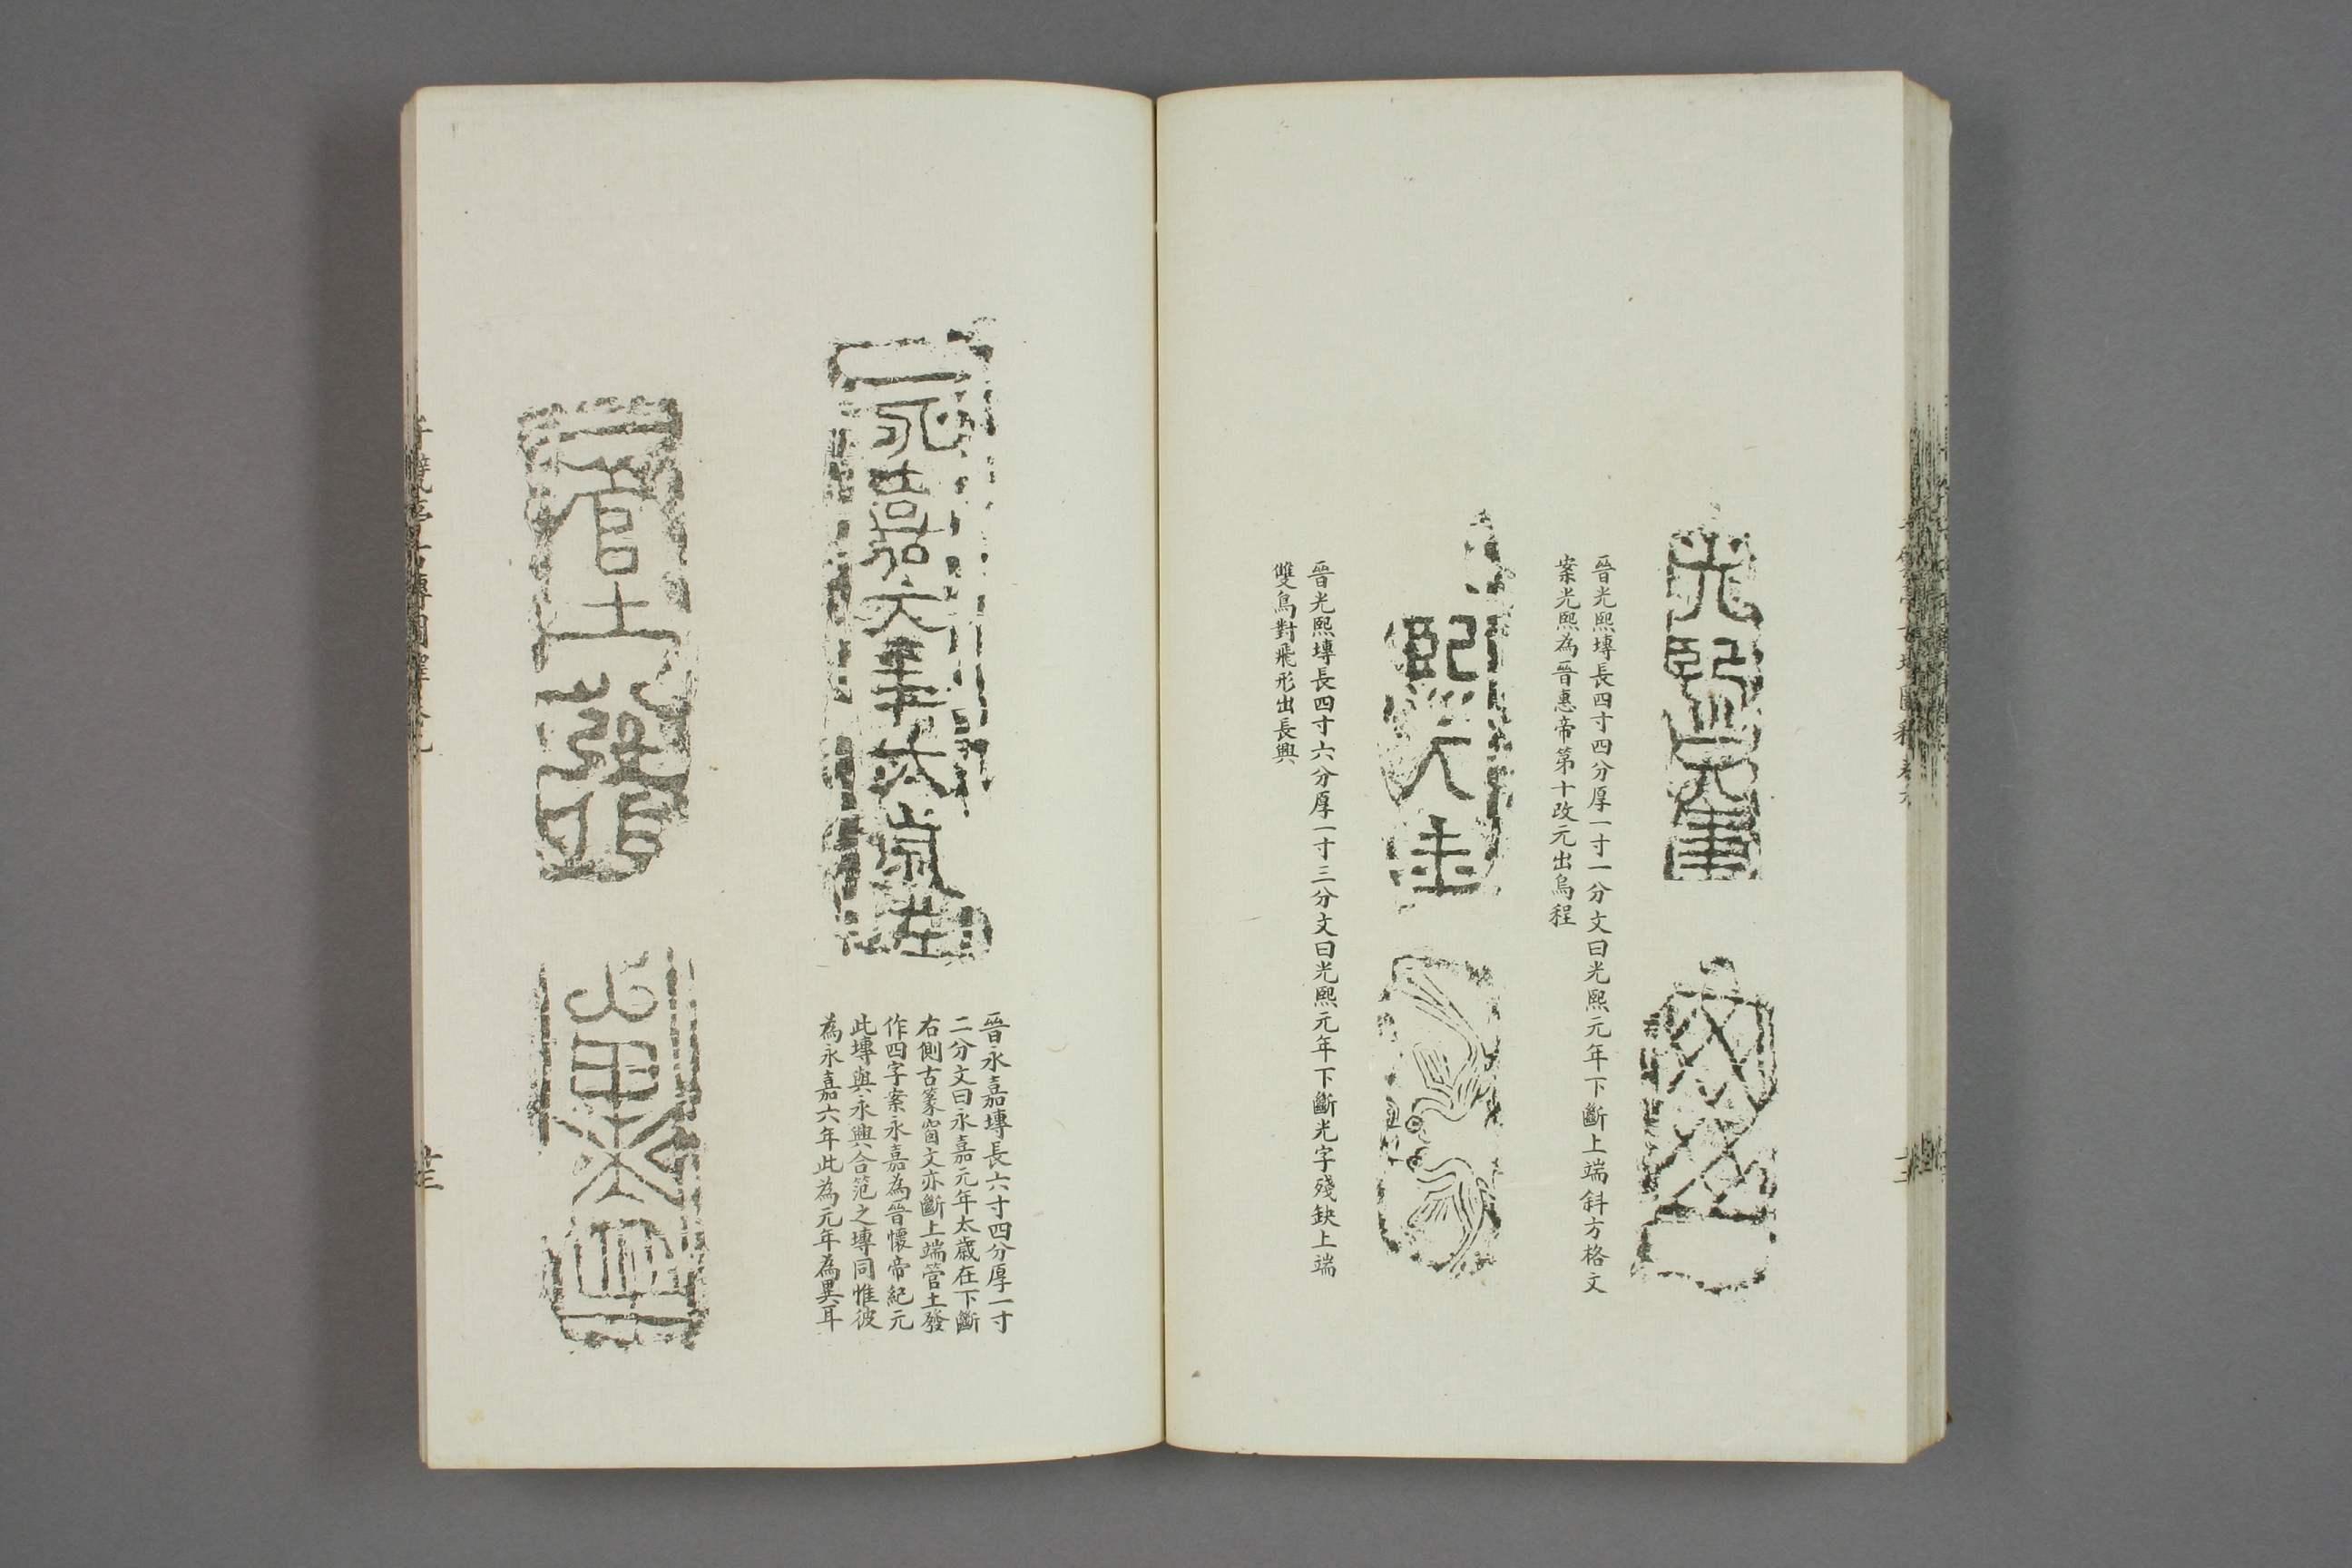 光熙元年
晉光熙塼長四寸四分厚一寸一分文曰光熙元年下斷上端斜方格文
案光熙為晉惠帝第十改元出烏程
熙元年
晉光熙塼長四寸六分厚一寸三分文曰光熙元年下斷光字殘缺上端
雙鳥對飛形出長興
永嘉元年太歲在
晉永嘉塼長六寸四分厚一寸
二分文曰永嘉元年太歲在下斷
右側古篆窗文亦斷上端管土發
作四字案永嘉為晉懷帝紀元
此塼與永興合笵之塼同惟彼
為永嘉六年此為元年為異耳